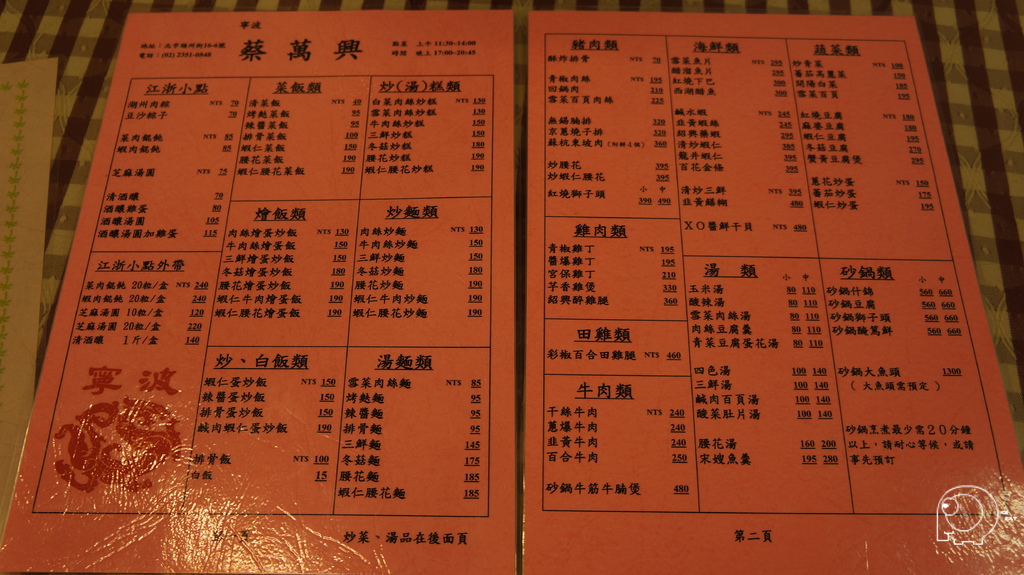 寧波
蔡萬興
電話：(02) 2351-0848
午 11:30-14:00
時間 晚上 17:00-20:45
江浙小點
湖州肉粽 NT$ 70
豆沙粽子 70
菜肉餛飩 NT$ 85
蝦肉餛飩 85
芝麻湯圓 NT$ 75
清酒釀 70
酒釀雞蛋 80
酒釀湯圓 105
酒釀湯圓加雞蛋 115
江浙小點外帶
菜肉餛飩 20粒/盒 NT$ 240
蝦肉餛飩 20粒/盒 240
芝麻湯圓 10粒/盒 120
芝麻湯圓 20粒/盒 220
清酒釀 1斤/盒 140
寧波
菜飯類
清菜飯 NT$ 40
烤麩菜飯 95
辣醬菜飯 95
排骨菜飯 100
蝦仁菜飯 150
腰花菜飯 190
蝦仁腰花菜飯 190
燴飯類
肉絲燴蛋炒飯 NT$ 130
牛肉絲燴蛋炒飯 150
三鮮燴蛋炒飯 150
冬菇燴蛋炒飯 180
腰花燴蛋炒飯 190
蝦仁牛肉燴蛋飯 190
蝦仁腰花燴蛋飯 190
炒、白飯類
蝦仁蛋炒飯 NT$ 150
辣醬蛋炒飯 150
排骨蛋炒飯 150
鹹肉蝦仁蛋炒飯 190
排骨飯 NT$ 100
白飯 15
炒(湯)糕類
白菜肉絲炒糕 NT$ 130
雪菜肉絲炒糕 130
牛肉絲炒糕 150
三鮮炒糕 150
冬菇炒糕 180
腰花炒糕 190
蝦仁腰花炒糕 190
炒麵類
肉絲炒麵 NT$ 130
牛肉絲炒麵 150
三鮮炒麵 150
冬菇炒麵 180
腰花炒麵 190
蝦仁炒麵 150
蝦仁腰花炒麵 190
湯麵類
雪菜肉絲麵 NT$ 85
烤麩麵 95
辣醬麵 95
排骨麵 95
三鮮麵 145
冬菇麵 175
腰花麵 185
蝦仁腰花麵 185
炒菜、湯品在後面頁
豬肉類
酥炸排骨 NT$ 70
青椒肉絲 NT$ 195
回鍋肉 210
雪菜百頁肉絲 225
無錫腩排 320
京蔥燒子排 320
蘇杭東坡肉 360
炒腰花 395
炒蝦仁腰花 395
小 中
紅燒獅子頭 390 490
雞肉類
青椒雞丁 NT$ 195
醬爆雞丁 195
宮保雞丁 210
芋香雞煲 330
紹興醉雞腿 360
田雞類
彩椒百合田雞腿 NT$ 460
牛肉類
干絲牛肉 NT$ 240
蔥爆牛肉 240
韭黃牛肉 240
百合牛肉 250
砂鍋牛筋牛腩煲 480
海鮮類
雪菜魚片 NT$ 295
醋溜魚片 295
紅燒下巴 300
西湖醋魚 300
鹹水蝦 NT$ 245
韭黃蝦絲 245
紹興藥蝦 295
清炒蝦仁 385
龍井蝦仁 395
百花金條 395
清炒三鮮 NT$ 395
韭黃鱔糊 480
XO醬鮮干貝 NT$ 480
湯 類
小 中
玉米湯 80 110
酸辣湯 80 110
雪菜肉絲湯 80 110
肉絲豆腐羹 80 110
青菜豆腐蛋花湯 80 110
四色湯 100 140
三鮮湯 100 140
鹹肉百頁湯 100 140
酸菜肚片湯 100 140
腰花湯 160 200
宋嫂魚羹 195 280
蔬菜類
炒青菜 NT$ 100
蕃茄高麗菜 150
開陽白菜 185
雪菜百頁 195
紅燒豆腐 NT$ 180
麻婆豆腐 180
蝦仁豆腐 195
冬菇豆腐 270
蟹黃豆腐煲 295
蔥花炒蛋 NT$ 150
蕃茄炒蛋 175
蝦仁炒蛋 195
砂鍋類
小 中
砂鍋什錦 560 660
砂鍋豆腐 560 660
砂鍋獅子頭 560 660
砂鍋醃篤鮮 560 660
砂鍋大魚頭 1300
（大魚頭需預定）
砂鍋烹煮最少需20分鐘
以上，請耐心等候，或請
事先預訂
第二頁